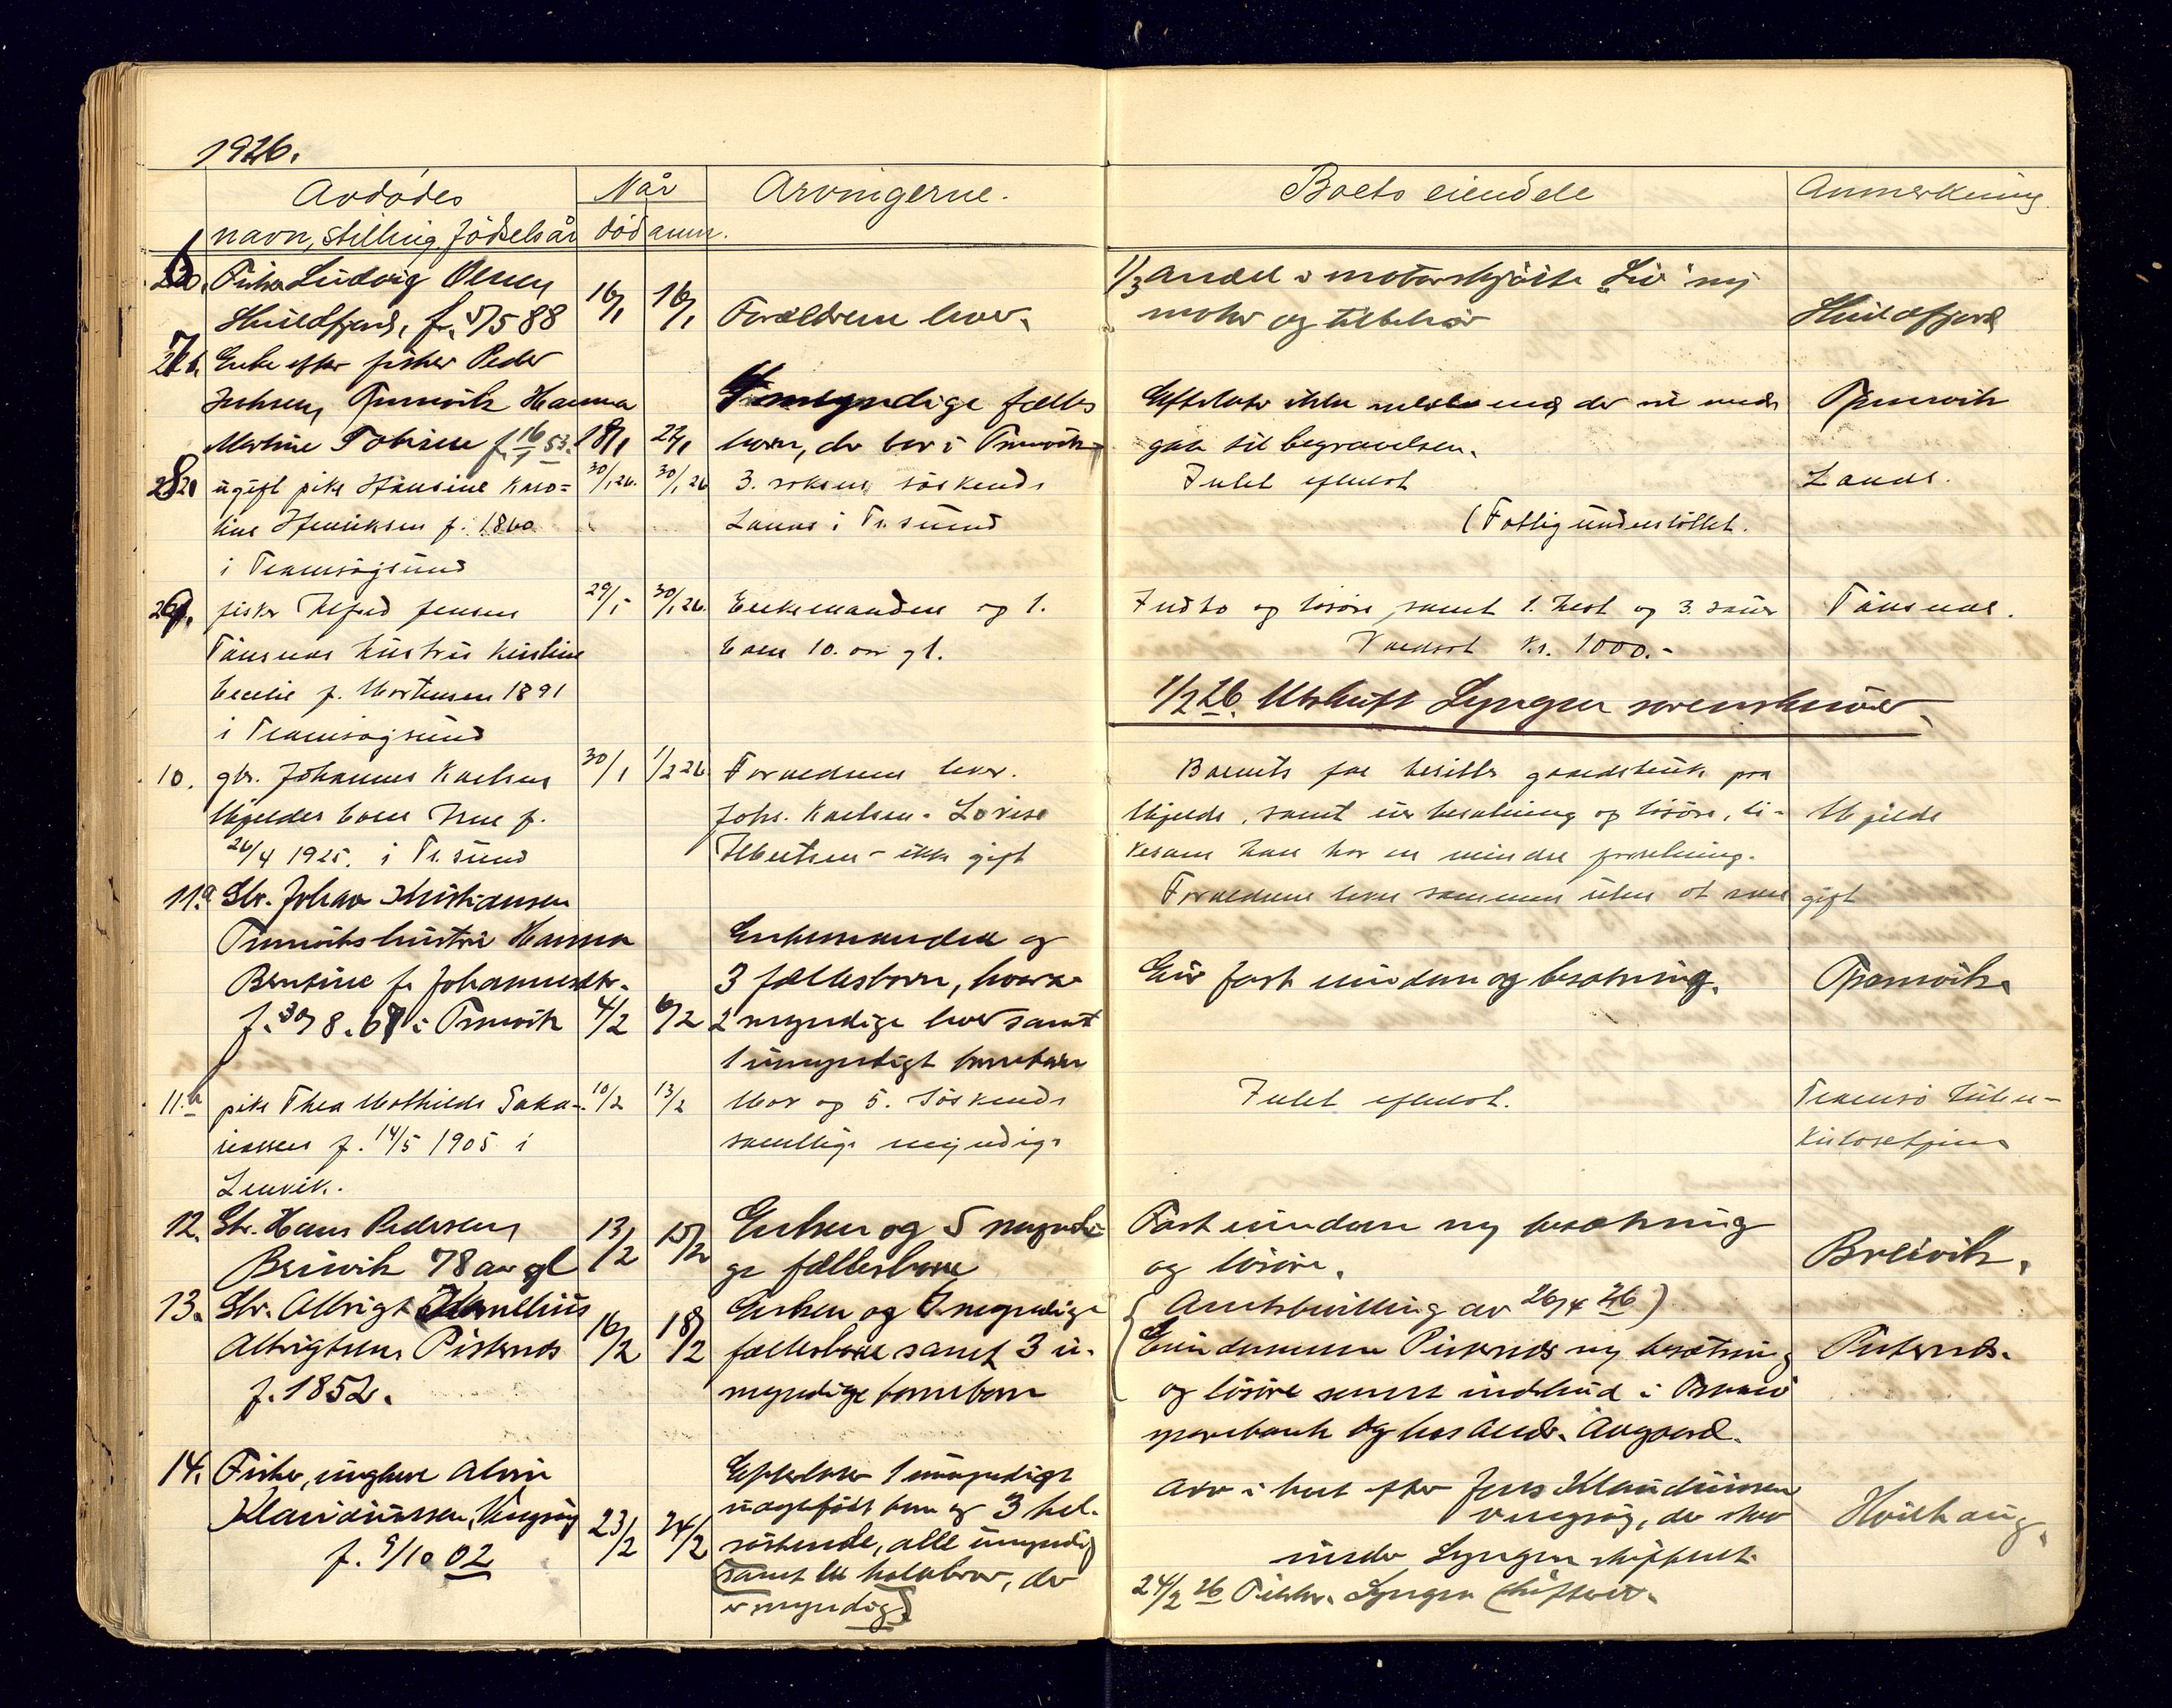 1926.
Avdødes
navn, stilling, fødselsår
Når
død anm.
Arvingerne.
Boets eiendele
Anmerkning.
6
Fisker Ludvig Olsen
f. 5/5 88
16/1 16/1
Forældrene lever.
1/3 andel i motorskjöite "Liv" ny
motor og tilbehör
7
Enke efter fisker Peder
Johsen, Hanna
Martine Tobine f. 16/1 53.
18/1 22/1
4 myndige fælles
born, der bor i
Efterlater ikke mere end der vil med-
gaa til begravelsen.
8
ugift pike Hansine Karo-
line Henriksen f. 1860
i Tromsøysund
30/1 26. 30/1 26
3. voksne søskende
i Tr. sund
Intet efterlat
(Fattigunderstøttet.
9.
fisker Alfred Jensen
hustru Kristine
Cecelie f. Mortensen 1891
i Tromsøysund
29/1 30/1 26.
Enkemanden og 1.
barn 10. aar gl.
Indbo og løsøre, samt 1. hest og 3. sauer
Værdsat kr. 1000.-
1/2 26. Utskrift Lyngen sorenskriver.
10.
gbr. Johannes Karlsen
Mjeldes barn f.
26/4 1925. i Tr. sund
30/1 1/2 26
Forældrene lever.
Johs. Karlsen - Lovise
Albertsen - ikke gift
Barnets far besitter gaardsbruk paa
Mjelde, samt besætning og løsøre, li-
kesom han har en mindre forretning.
Forældrene lever sammen uten at være gift
Mjelde
11.a
Gbr. Johan Kristiansen
hustru Hanna
Bentine f. Johannesdtr.
f. 30/8. 67 i
4/2 6/2
Enkemanden og
3 fællesborn, hvorav
2 myndige lever samt
1 umyndigt barnebarn
Eier fast eiendom og besætning.
11.b
pike Thea Mathilde Saka-
riassen f. 14/5 1905 i
Lenvik.
10/2 13/2
Mor og 5. søskende
samtlige myndige
Intet efterlat.
Tromsø tuber-
kulosehjem
12.
Gbr. Hans Pedersen,
Breivik 78 aar gl
13/2 15/2
Enken og 5 myndi-
ge fællesborn
Fast eiendom og besætning
og lösöre.
Breivik.
13.
Gbr. Albrigt Kornelius
Albrigtsen,
f. 1852.
16/2 18/2
Enken og 7 myndige
fællesborn samt 3 u-
myndige barneborn
(Amtsbevilling av 26/4 26)
Eiendommen og besætning
og lösöre samt indskud i Tromsö
sparebank og hos Andr. Aagaard.
14.
Fisker, ungkar Alvin
Klaudiussen,
f. 9/10 02
23/2 24/2
Efterlater 1 umyndigt
uægtefödt barn og 3 hel-
söskende, alle umyndig
(samt halvbror, der
er myndig)
Arv i boet efter Jens Klaudiussen
der staar
under Lyngen skifteret.
24/2 26 Lyngen skifteret.